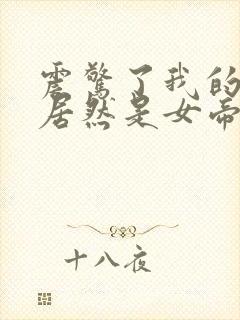 震惊了我的
居然是女帝
十八夜